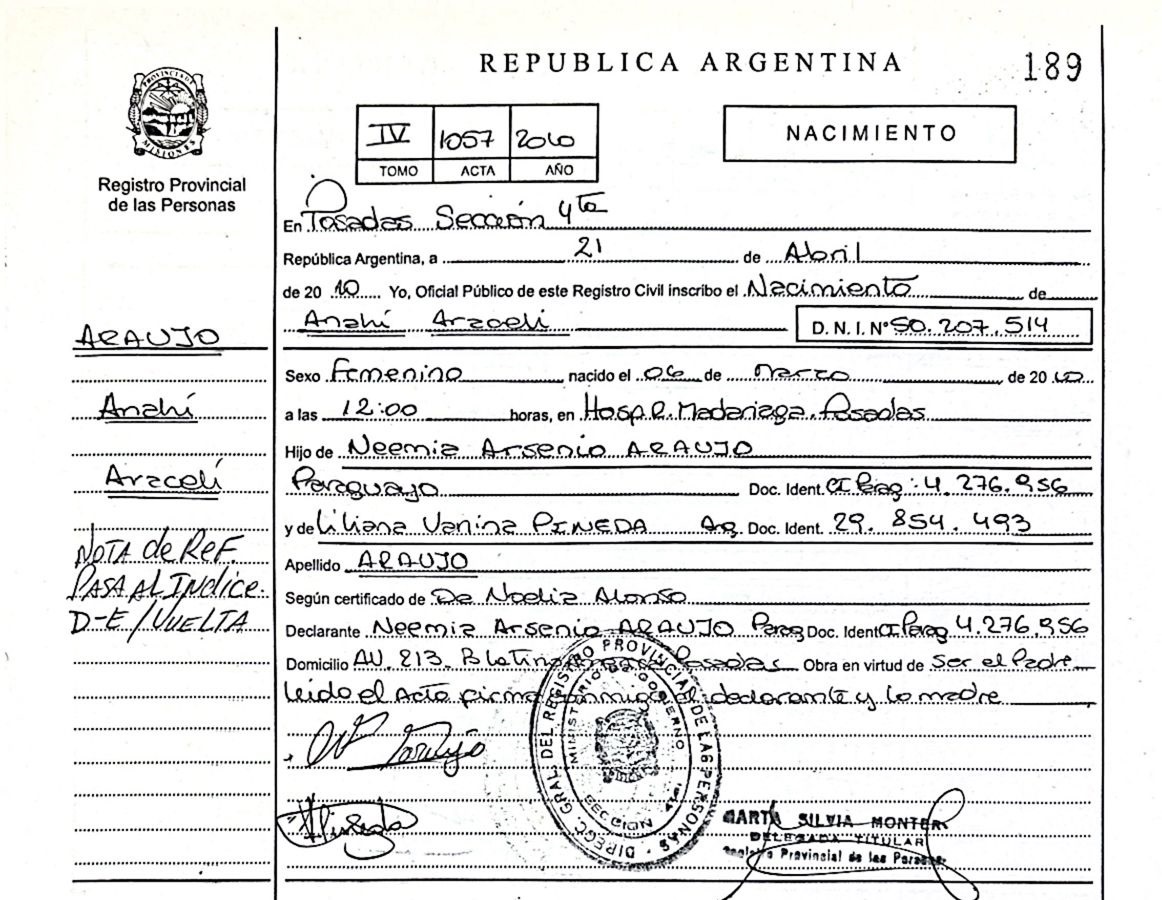 REPUBLICA ARGENTINA
189
PROVINCIA DE
MISIONES
Registro Provincial
de las Personas
IV 1057 2010
TOMO ACTA AÑO
NACIMIENTO
En Posadas Sección 4ta
República Argentina, a 21 de Abril
de 20 10 Yo, Oficial Público de este Registro Civil inscribo el Nacimiento de
Anahí Araceli D. N. I. Nº 50.207.514
ARAUJO
Sexo Femenino nacido el 06 de Marzo de 20 10
Anahí
a las 12:00 horas, en Hosp. R. Madariaga. Posadas
Hijo de Neemia Arsenio ARAUJO
Araceli
Paraguayo Doc. Ident. CI Parag: 4.276.956
y de Liliana Vanina PINEDA Arg. Doc. Ident. 29.854.493
NOTA de Ref.
PASA AL INdice
D-E/VUELTA
Apellido ARAUJO
Según certificado de Da Noelia Alonso
Declarante Neemia Arsenio ARAUJO Parag Doc. Ident CI Parag 4.276.956
Domicilio AV. 213. B Posadas Obra en virtud de ser el Padre
leido el Acta firma conmigo el declarante y la madre
DIREGC. GRAL. DEL REGISTRO PROVINCIAL DE LAS PERSONAS
MINISTERIO DE GOBIERNO
SECCION 4ta
MARTA SILVIA MONTER
DELEGADA TITULAR
Registro Provincial de las Personas